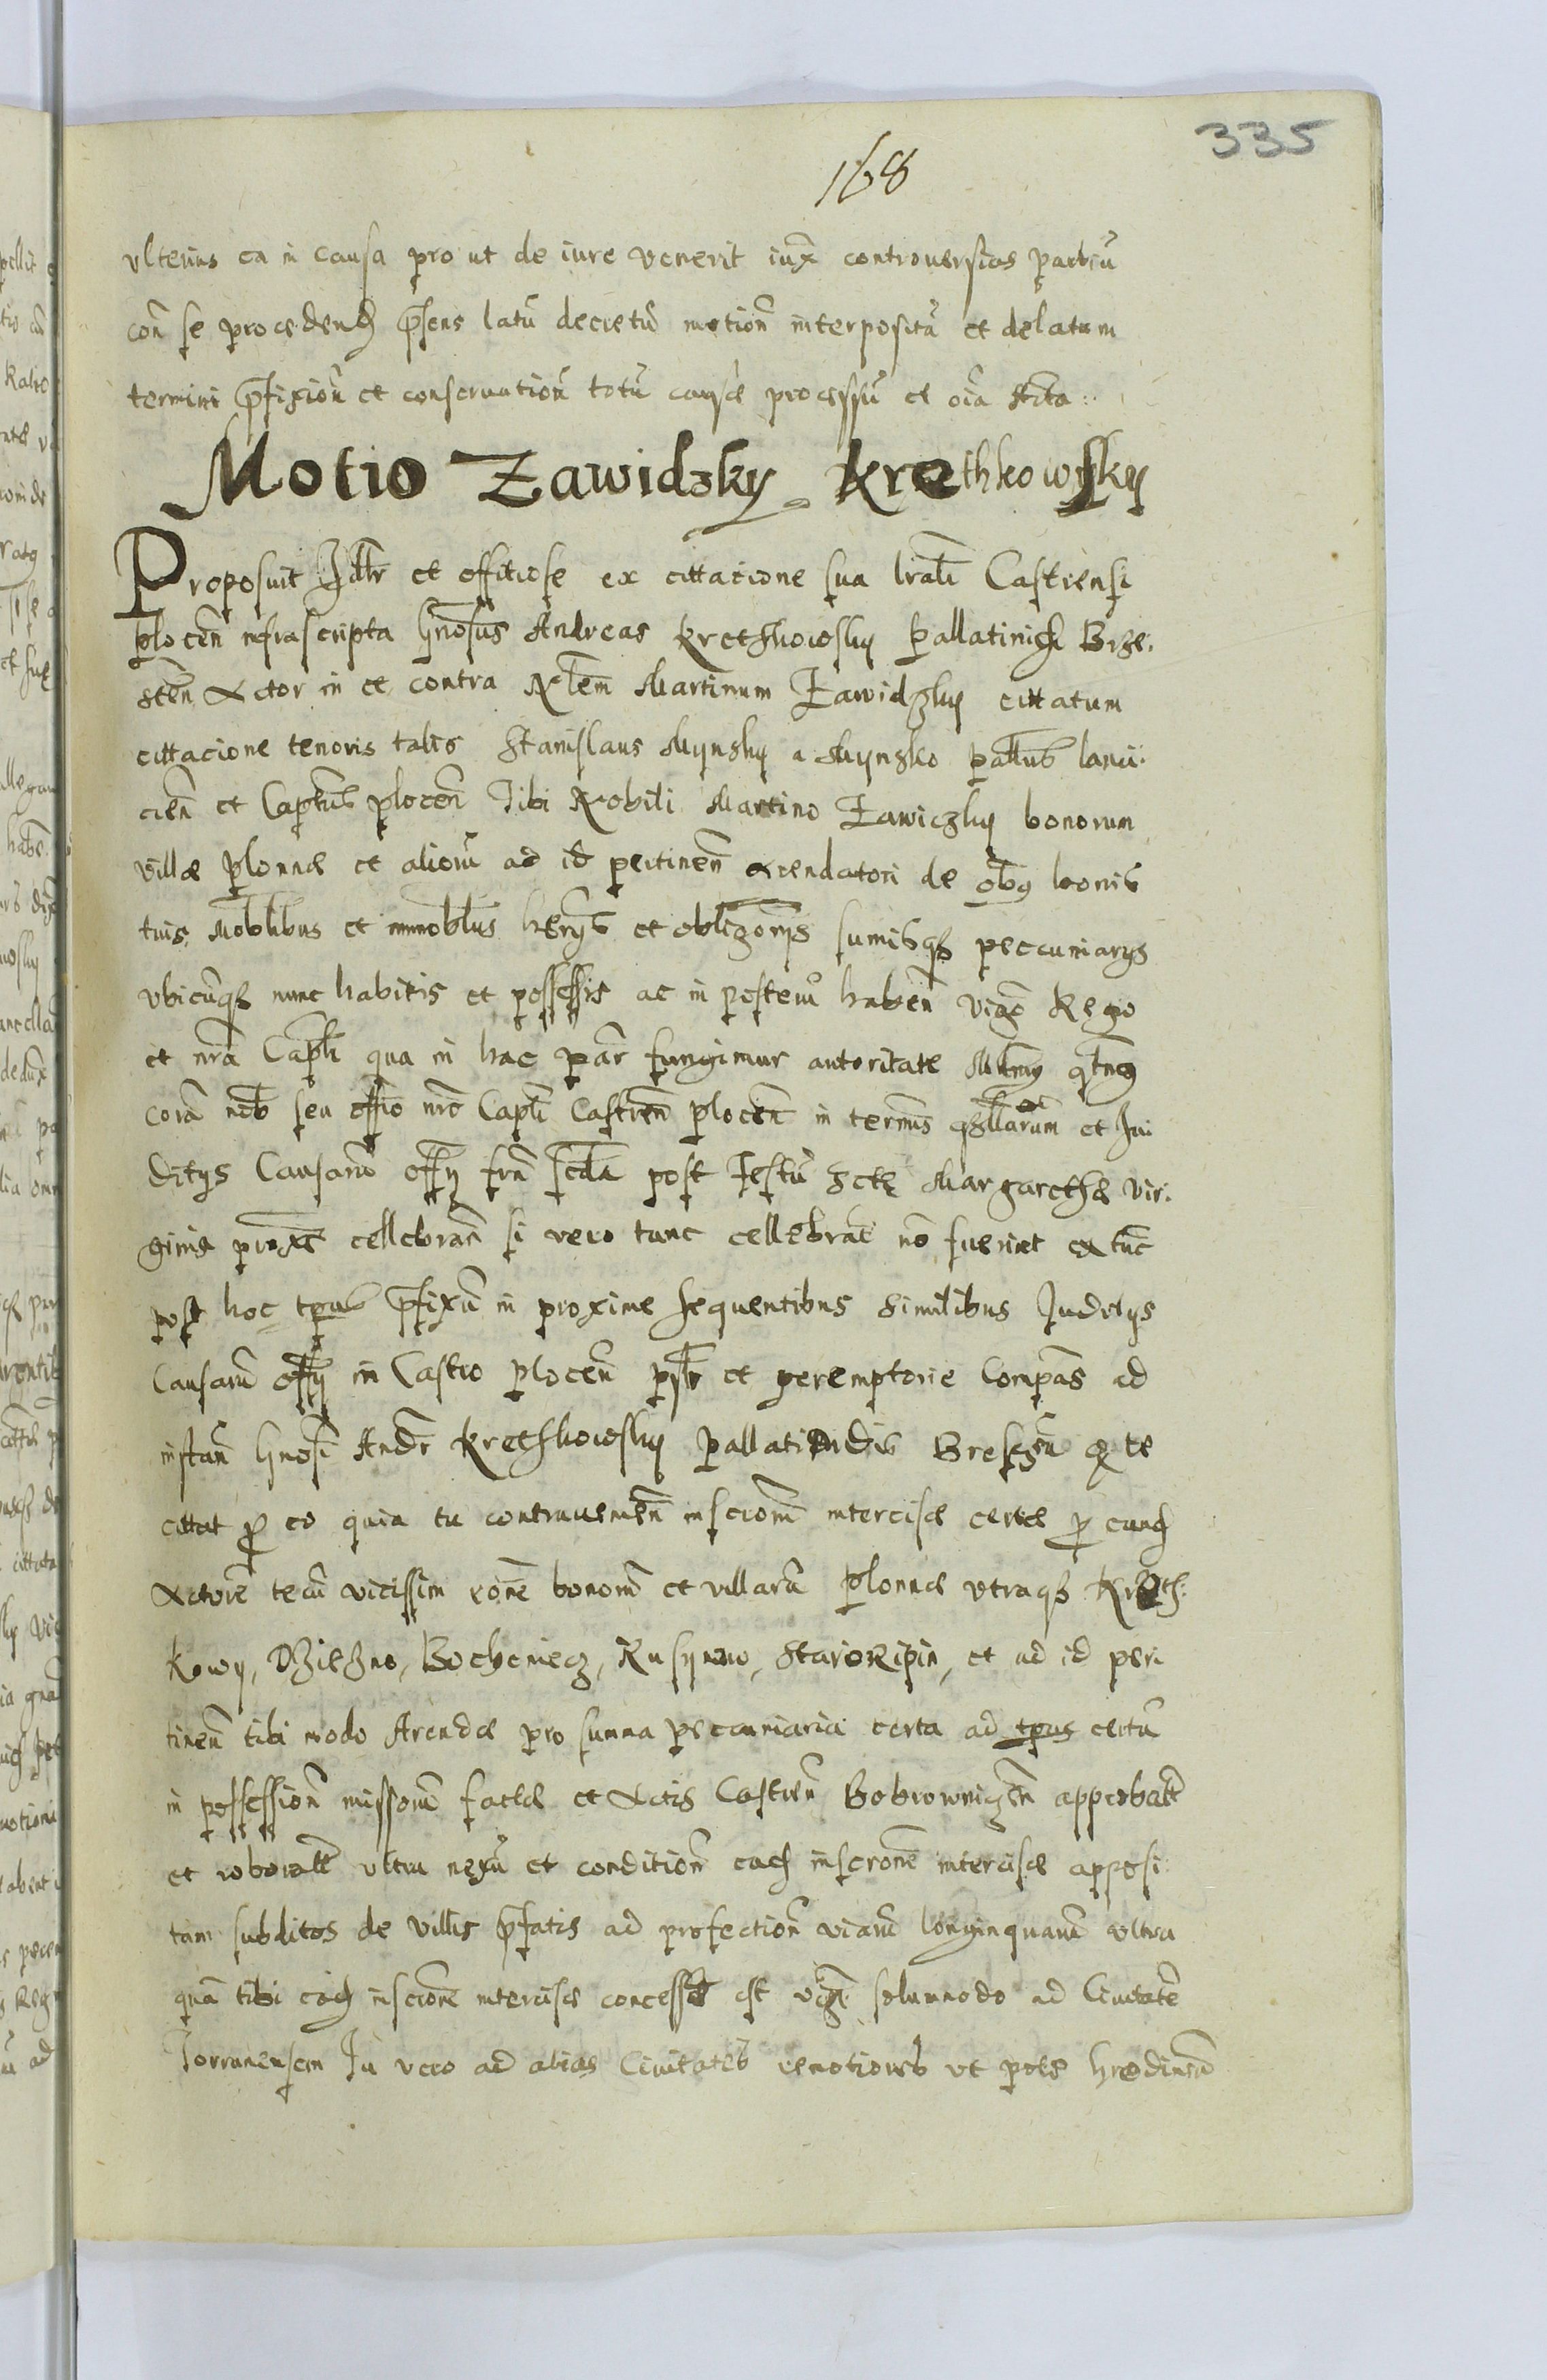 335
168
ulterius ea in causa pro ut de iure venerit iux controversias partiū
con se procedend pn̄sens latū decretū motion interpositā et delatum
termini p̄fixion̄ et conservation totū causæ processū et oīa Acta
Motio Zawidzky Krethkowsky
Proposuit Idlr et offitiose ex cittacione sua lrāli Castrensi
plocen̄ infrascripta Gn̄osus Andreas Krethkowsky Pallatinich Brze:
sten̄ Actor in et contra Nłem Martinum Zawidzky cittatum
cittacione tenoris talis Stanislaus Mynsky a Mynsko pallūs lanci:
cien̄ et Cap̄tnus plocen̄ Tibi Nobili Martino Zawiczky bonorum
villæ Plonnæ et alioru ad id pertinen̄ arendatori de obus bonis
tuis Moblibus et immoblibus herijs et obligonijs sumisqz peccuniarys
ubicunqz nunc habitis et possessis ac in posteru haben̄ vigē Regio
et nr̄a Capłi qua in hac par fungimur autoritate Mdamg qtng
corā nob seu offio nr̄o Capłi Castren̄ plocen̄ in terminis qrllarum et Iui
ditys Causaru offy frā scda post Festū Sctę Margarethæ vir:
ginis proxē cellebran̄ si vero tunc cellebratē nō fuerint ex tūc
post hoc tpus p̄fixū in proxime sequentibus similibus Juditys
Causarū offy in Castro plocen̄ psłr et peremptorie Compās ad
instan̄ Gnosi Andr Krethkowsky pallatinidis Breskn̄ q te
cittat p̄ eo quia tu contravenien̄ inscrionī intercisæ certæ p̄ eund
Actore tecū vicissim rōne bonorū et villarū Plonnæ utraqz Kreth:
kowy, Dzieżno, Bocheniecz, Rusynwo, Staroripin, et ad id peri
tinen̄ tibi modo Arendæ pro summa peccuniaria certa ad tpus certū
in possession̄ missorū factæ et Actis Castren̄ Bobrownicen̄ approbate
et roborate ultra nexū et condition̄ ead inscrone intercisæ apposi
tam subditos de villis p̄fatis ad profection̄ viarū longinquarū ultra
quā tibi ead inscrione intercisæ concessæ est vigē solummodo ad Civitatē
Torrunensem Tu vero ad alias Civitates remotiores ut pote